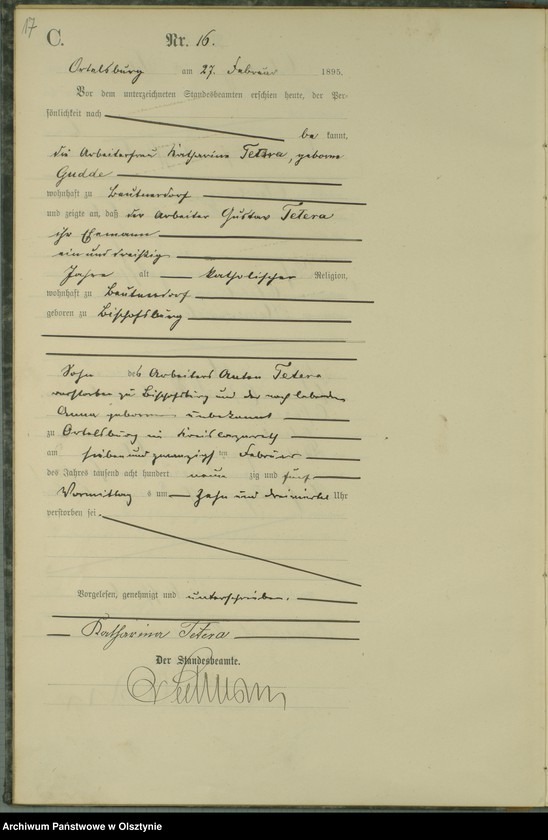 17
C.
Nr. 16.
Ortelsburg am 27. Februar 1895.
Vor dem unterzeichneten Standesbeamten erschien heute, der Per-
sönlichkeit nach
be kannt,
die Arbeiterfrau Katharina Tetera, geborene
Gudde
wohnhaft zu Beutnerdorf
und zeigte an, daß der Arbeiter Gustav Tetera
ihr Ehemann
ein und dreißig
Jahre alt katholischer Religion,
wohnhaft zu Beutnerdorf
geboren zu Bischofsburg
Sohn des Arbeiters Anton Tetera
verstorben zu Bischofsburg und der noch lebenden
Anna geborenen unbekannt
zu Ortelsburg im Kreislazareth
am sieben und zwanzigsten Februar
des Jahres tausend acht hundert neun zig und fünf
Vormittag s um zehn und dreiviertel Uhr
verstorben sei.
Vorgelesen, genehmigt und unterschrieben.
Katharina Tetera
Der Standesbeamte.
Archiwum Państwowe w Olsztynie